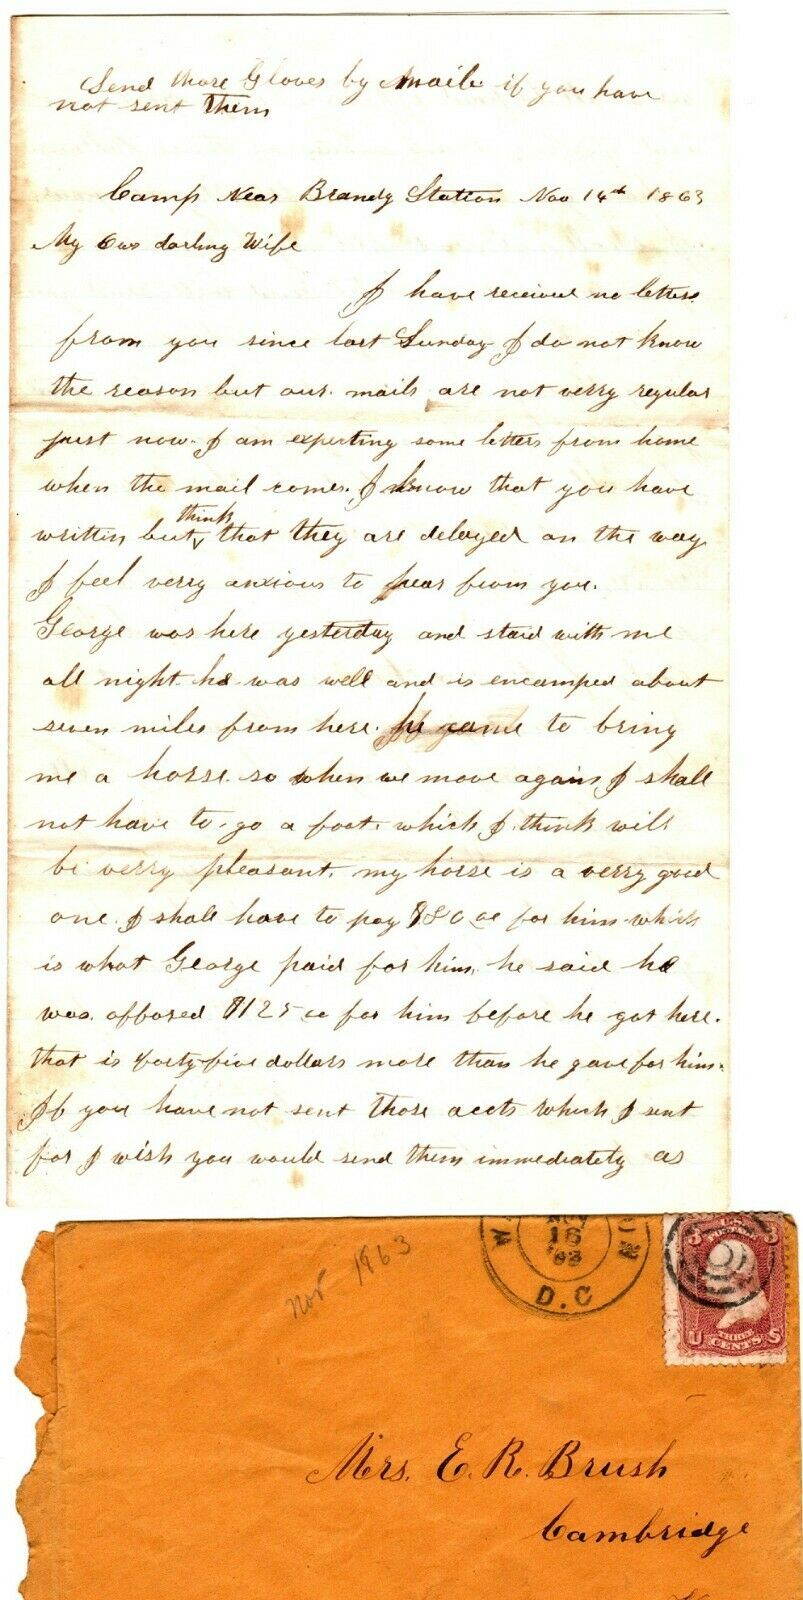 Send those Gloves by Maile if you have
not sent them
Camp Near Brandy Station Nov 14th 1863
My Own darling Wife
I have received no letters
from you since last Sunday I do not know
the reason but our mails are not verry regular
just now. I am expecting some letters from home
when the mail comes. I know that you have
written but think that they are delayed on the way
I feel verry anxious to hear from you.
George was here yesterday and staid with me
all night he was well and is encamped about
seven miles from here. he came to bring
me a horse so when we move again I shall
not have to go a foot. which I think will
be verry pleasant. my horse is a verry good
one I shall have to pay $80.00 for him which
is what George paid for him. he said he
was offored $125 00 for him before he got here.
that is forty-five dollars more than he gave for him.
If you have not sent those accts which I sent
for I wish you would send them immediately as
Nov 1863
NOV
16
'63
D.C
3 U.S. 3
POSTAGE
U THREE S
CENTS
Mrs. E. R. Brush
Cambridge